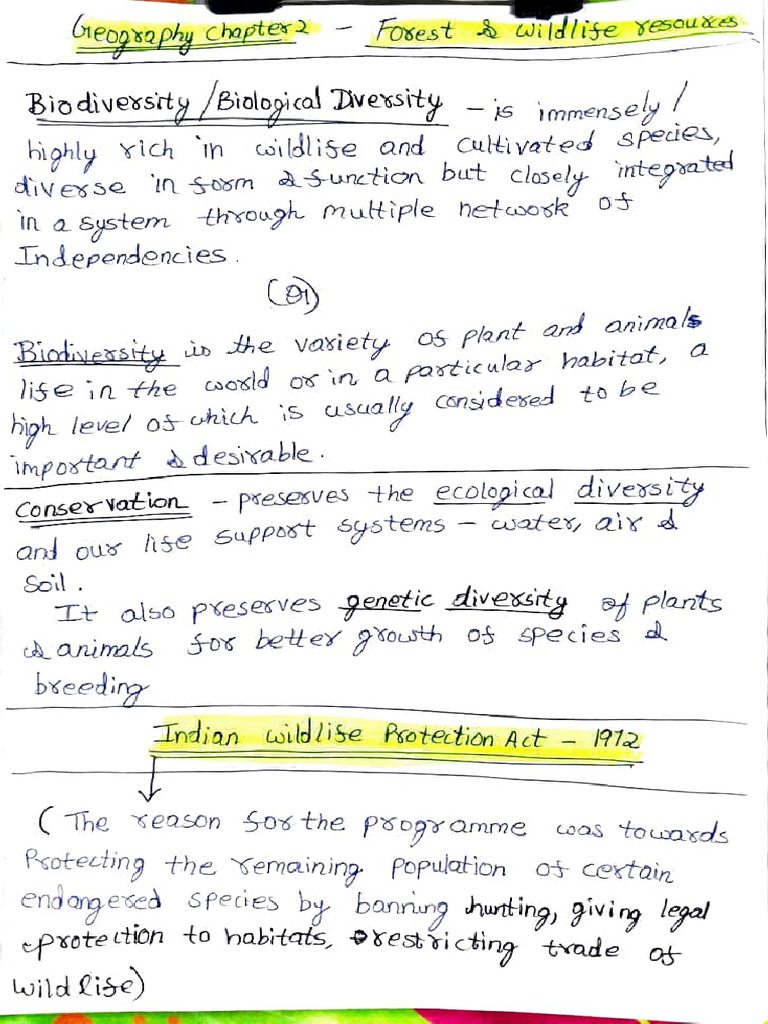 Geography Chapter 2 - Forest & wildlife resources
Biodiversity / Biological Diversity - is immensely /
highly rich in wildlife and cultivated species,
diverse in form & function but closely integrated
in a system through multiple network of
Independencies.
(or)
Biodiversity is the variety of plant and animals
life in the world or in a particular habitat, a
high level of which is usually considered to be
important & desirable.
Conservation - preserves the ecological diversity
and our life support systems - water, air &
soil.
It also preserves genetic diversity of plants
& animals for better growth of species &
breeding
Indian wildlife Protection Act - 1972
(The reason for the programme was towards
Protecting the remaining population of certain
endangered species by banning hunting, giving legal
protection to habitats, restricting trade of
wildlife)